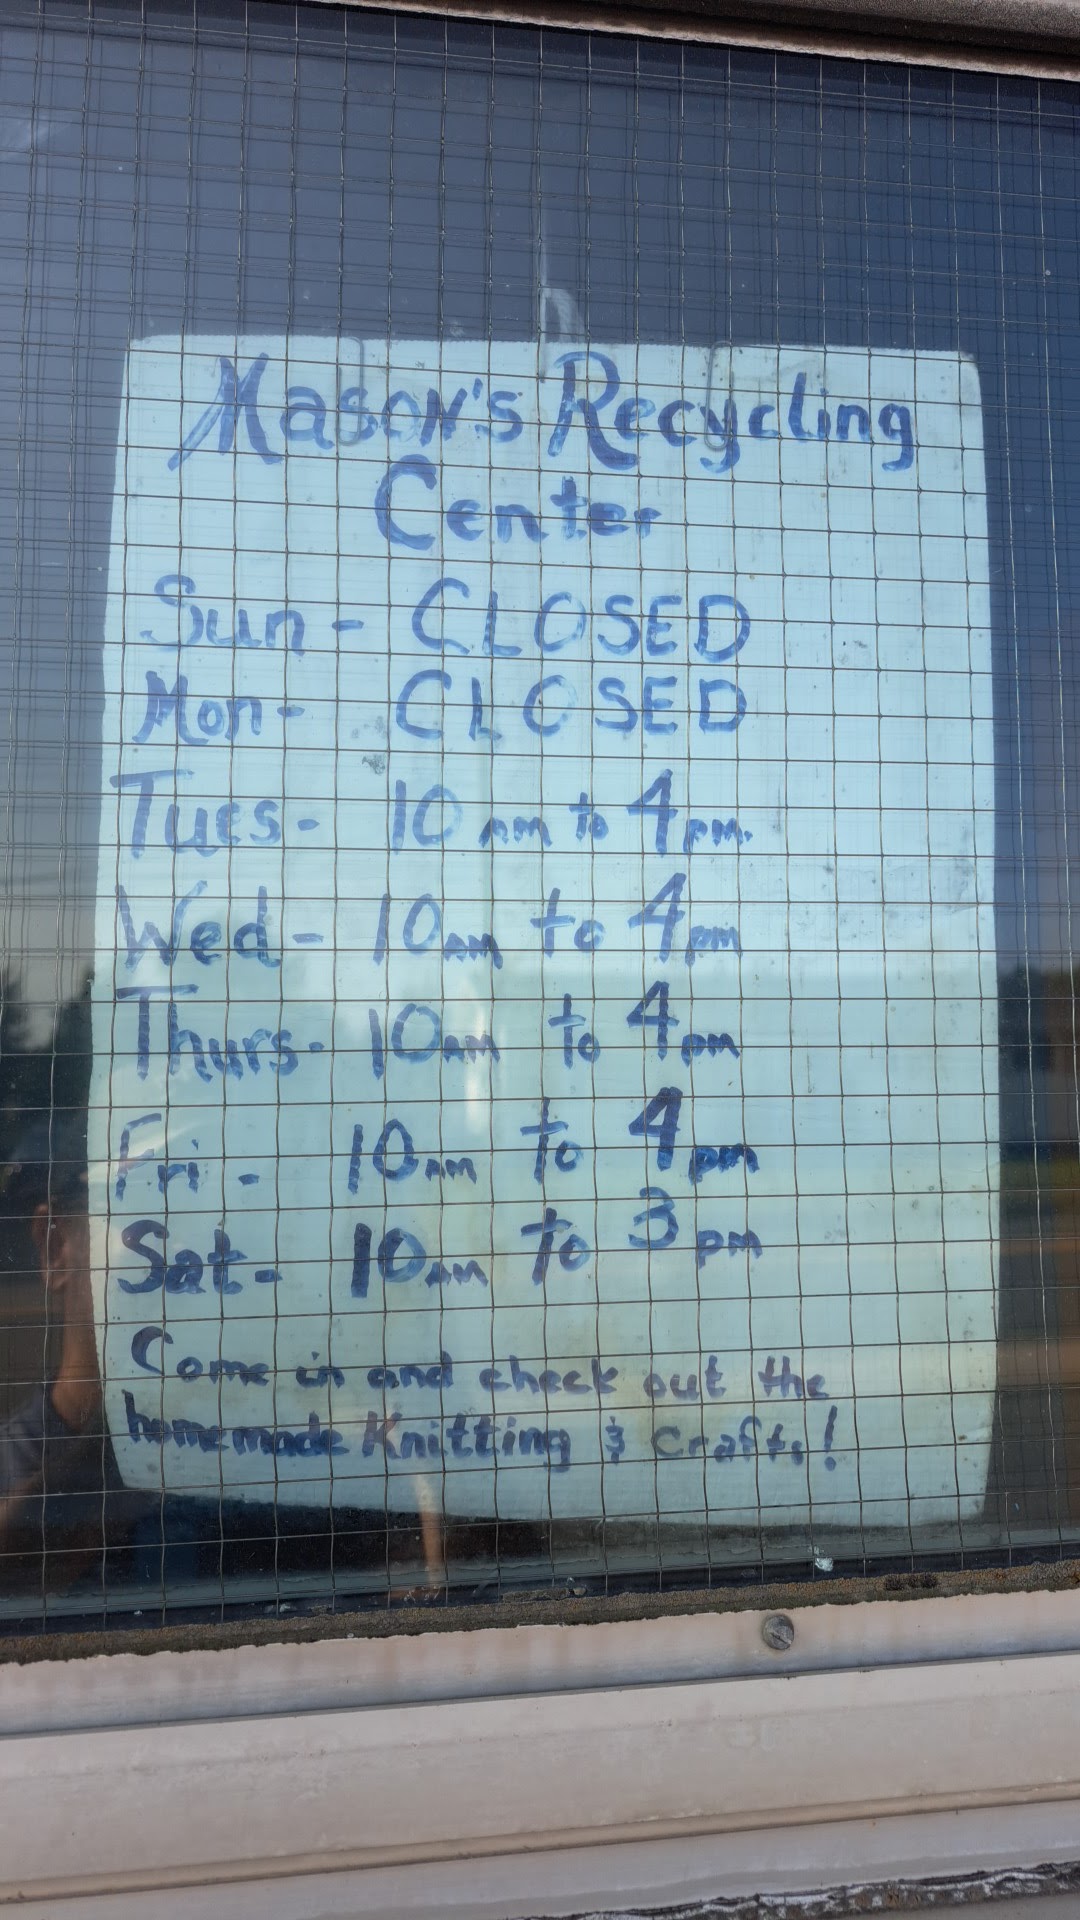 Mason's Recycling
Center
Sun - CLOSED
Mon- CLOSED
Tues- 10 am to 4 pm.
Wed - 10am to 4pm
Thurs- 10am to 4pm
Fri - 10am to 4pm
Sat- 10am to 3pm
Come in and check out the
homemade Knitting & Crafts!